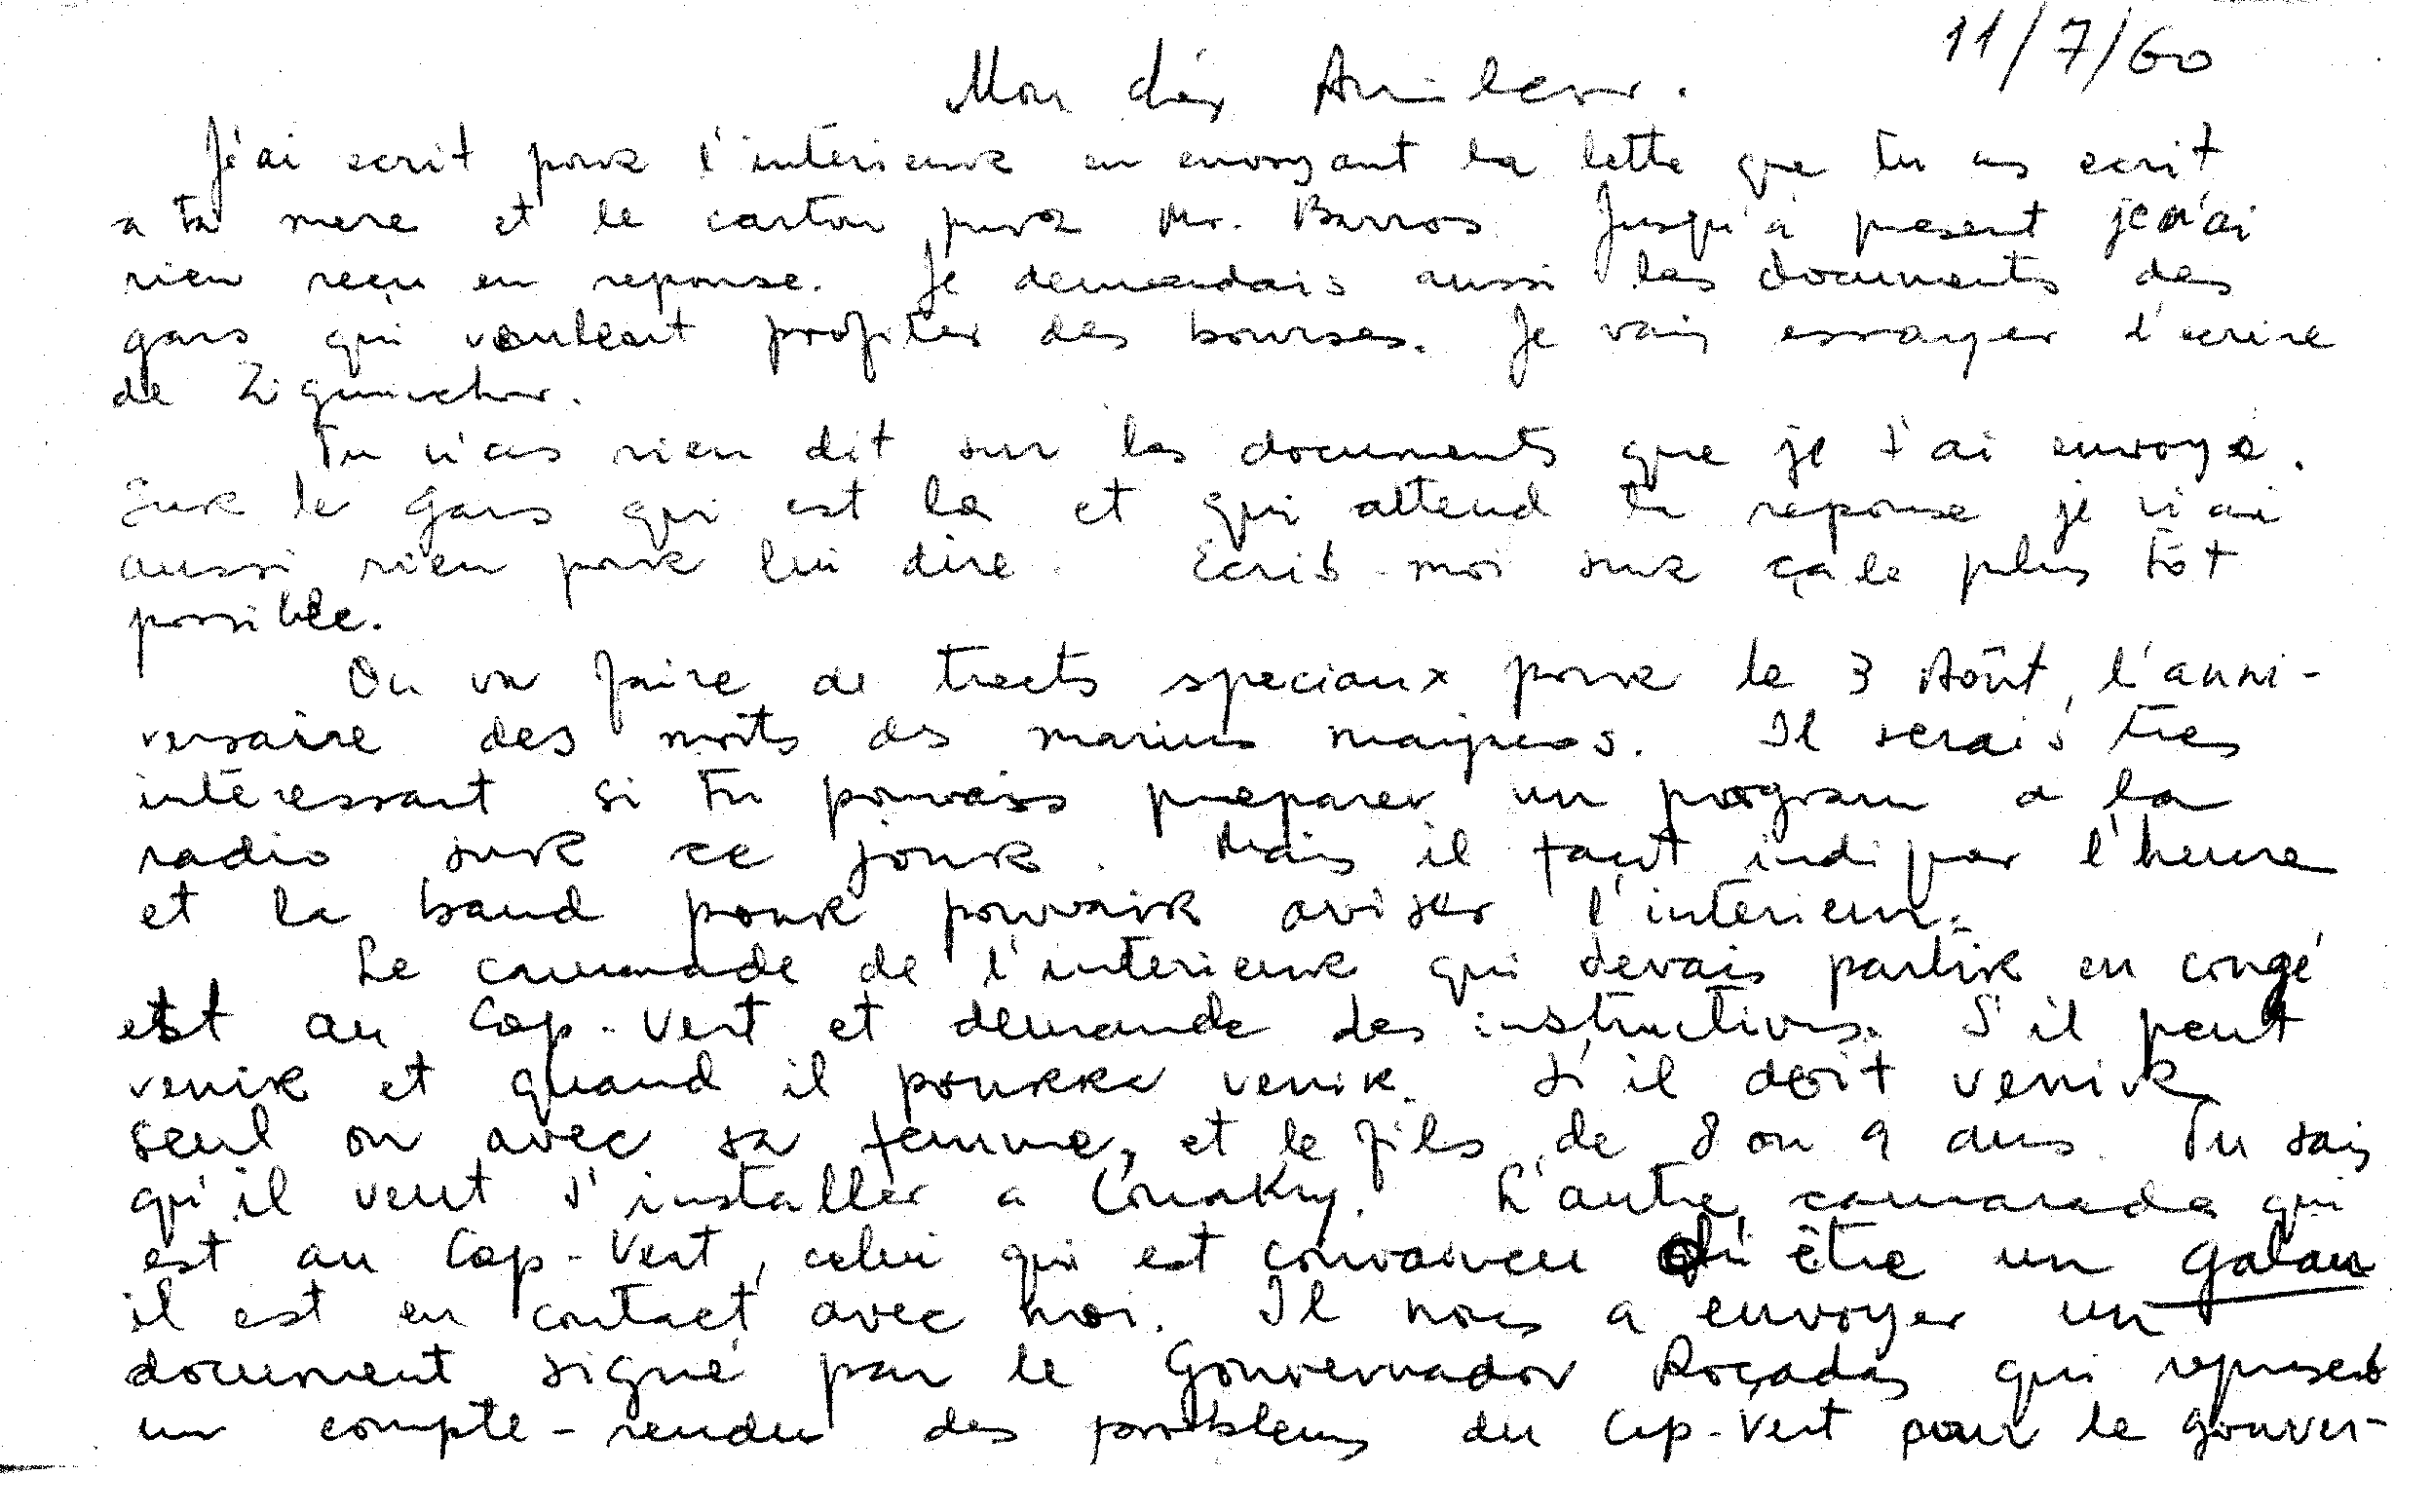 11/7/60
Mon cher Amilcar.
J'ai ecrit pour l'intérieur en envoyant la lettre que tu as ecrit
a ta mere et le carton pour Mr. Barros Jusqu'à present je n'ai
rien reçu en reponse. Je demandais aussi les documents des
gars qui veulent profiter des bourses. Je vais essayer d'ecrire
de Ziguinchor.
Tu n'as rien dit sur les documents que je t'ai envoye.
Sur le gars qui est la et qui attend ta reponse je n'ai
aussi rien pour lui dire. Ecris-moi sur ça le plus tôt
possible.
On va faire de tracts speciaux pour le 3 Août, l'anni-
versaire des morts des marins. Il serais tres
intéressant si tu pouvais preparer un program a la
radio sur ce jour. Mais il faut indiquer l'heure
et la band pour pouvoir aviser l'interieur.
Le camarade de l'interieur qui devais partir en congé
est au Cap-Vert et demande des instructions. S'il peut
venir et quand il pourra venir. S'il doit venir
seul ou avec sa femme, et le fils de 8 ou 9 ans. Tu sais
qu'il veut s'installer a Conakry. L'autre camarade qui
est au Cap-Vert, celui qui est convaincu d'être un galan
il est en contact avec moi. Il nous a envoyer un
document signé par le Gouvernador Roçadas qui represent
un compte-rendu des problems du Cap-Vert pour le gouver-